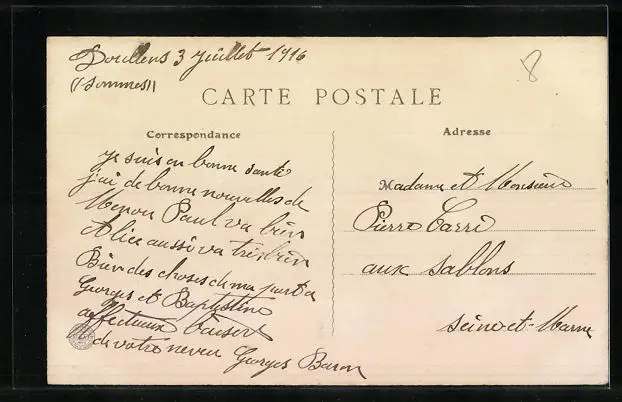 Doullens 3 Juillet 1916
(Somme)
8
CARTE POSTALE
Correspondance
Adresse
je suis en bonne santé
j'ai de bonne nouvelles de
Paul va bien
Alice aussi va très bien
Bien des choses de ma part a
Georges et Baptistine
affectueux baisers
de votre neveu Georges Baron
Madame et Monsieur
Pierre Carré
aux Sablons
Seine-et-Marne